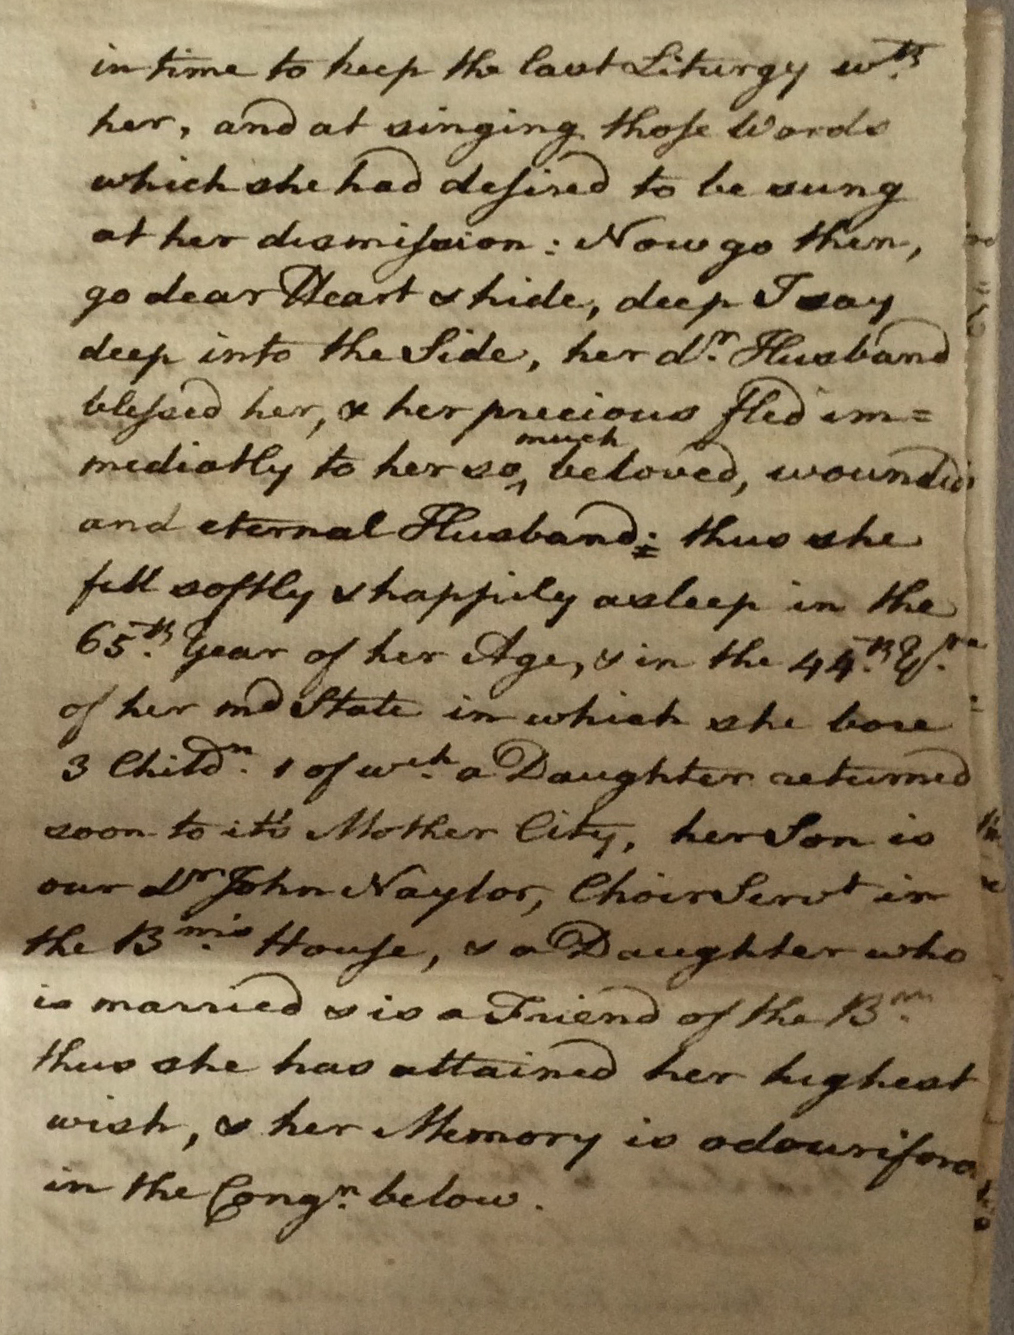 in time to keep the last Liturgy wth.
her, and at singing those Words
which she had desired to be sung
at her dismission: Now go then,
go dear Heart & hide, deep I say
deep into the Side, her dr. Husband
blessed her, & her precious fled im=
much
mediatly to her so^ beloved, wounded
and eternal Husband: thus she
fell softly & happily asleep in the
65.th Year of her Age, & in the 44.th
of her md State in which she bore
3 Childn. 1 of wch. a Daughter returned
soon to it's Mother City, her Son is
our dr John Naylor, Choir Servt in
the Bms. House, & a Daughter who
is married & is a Friend of the Bm.
thus she has attained her highest
wish, & her Memory is
in the Congn. below.